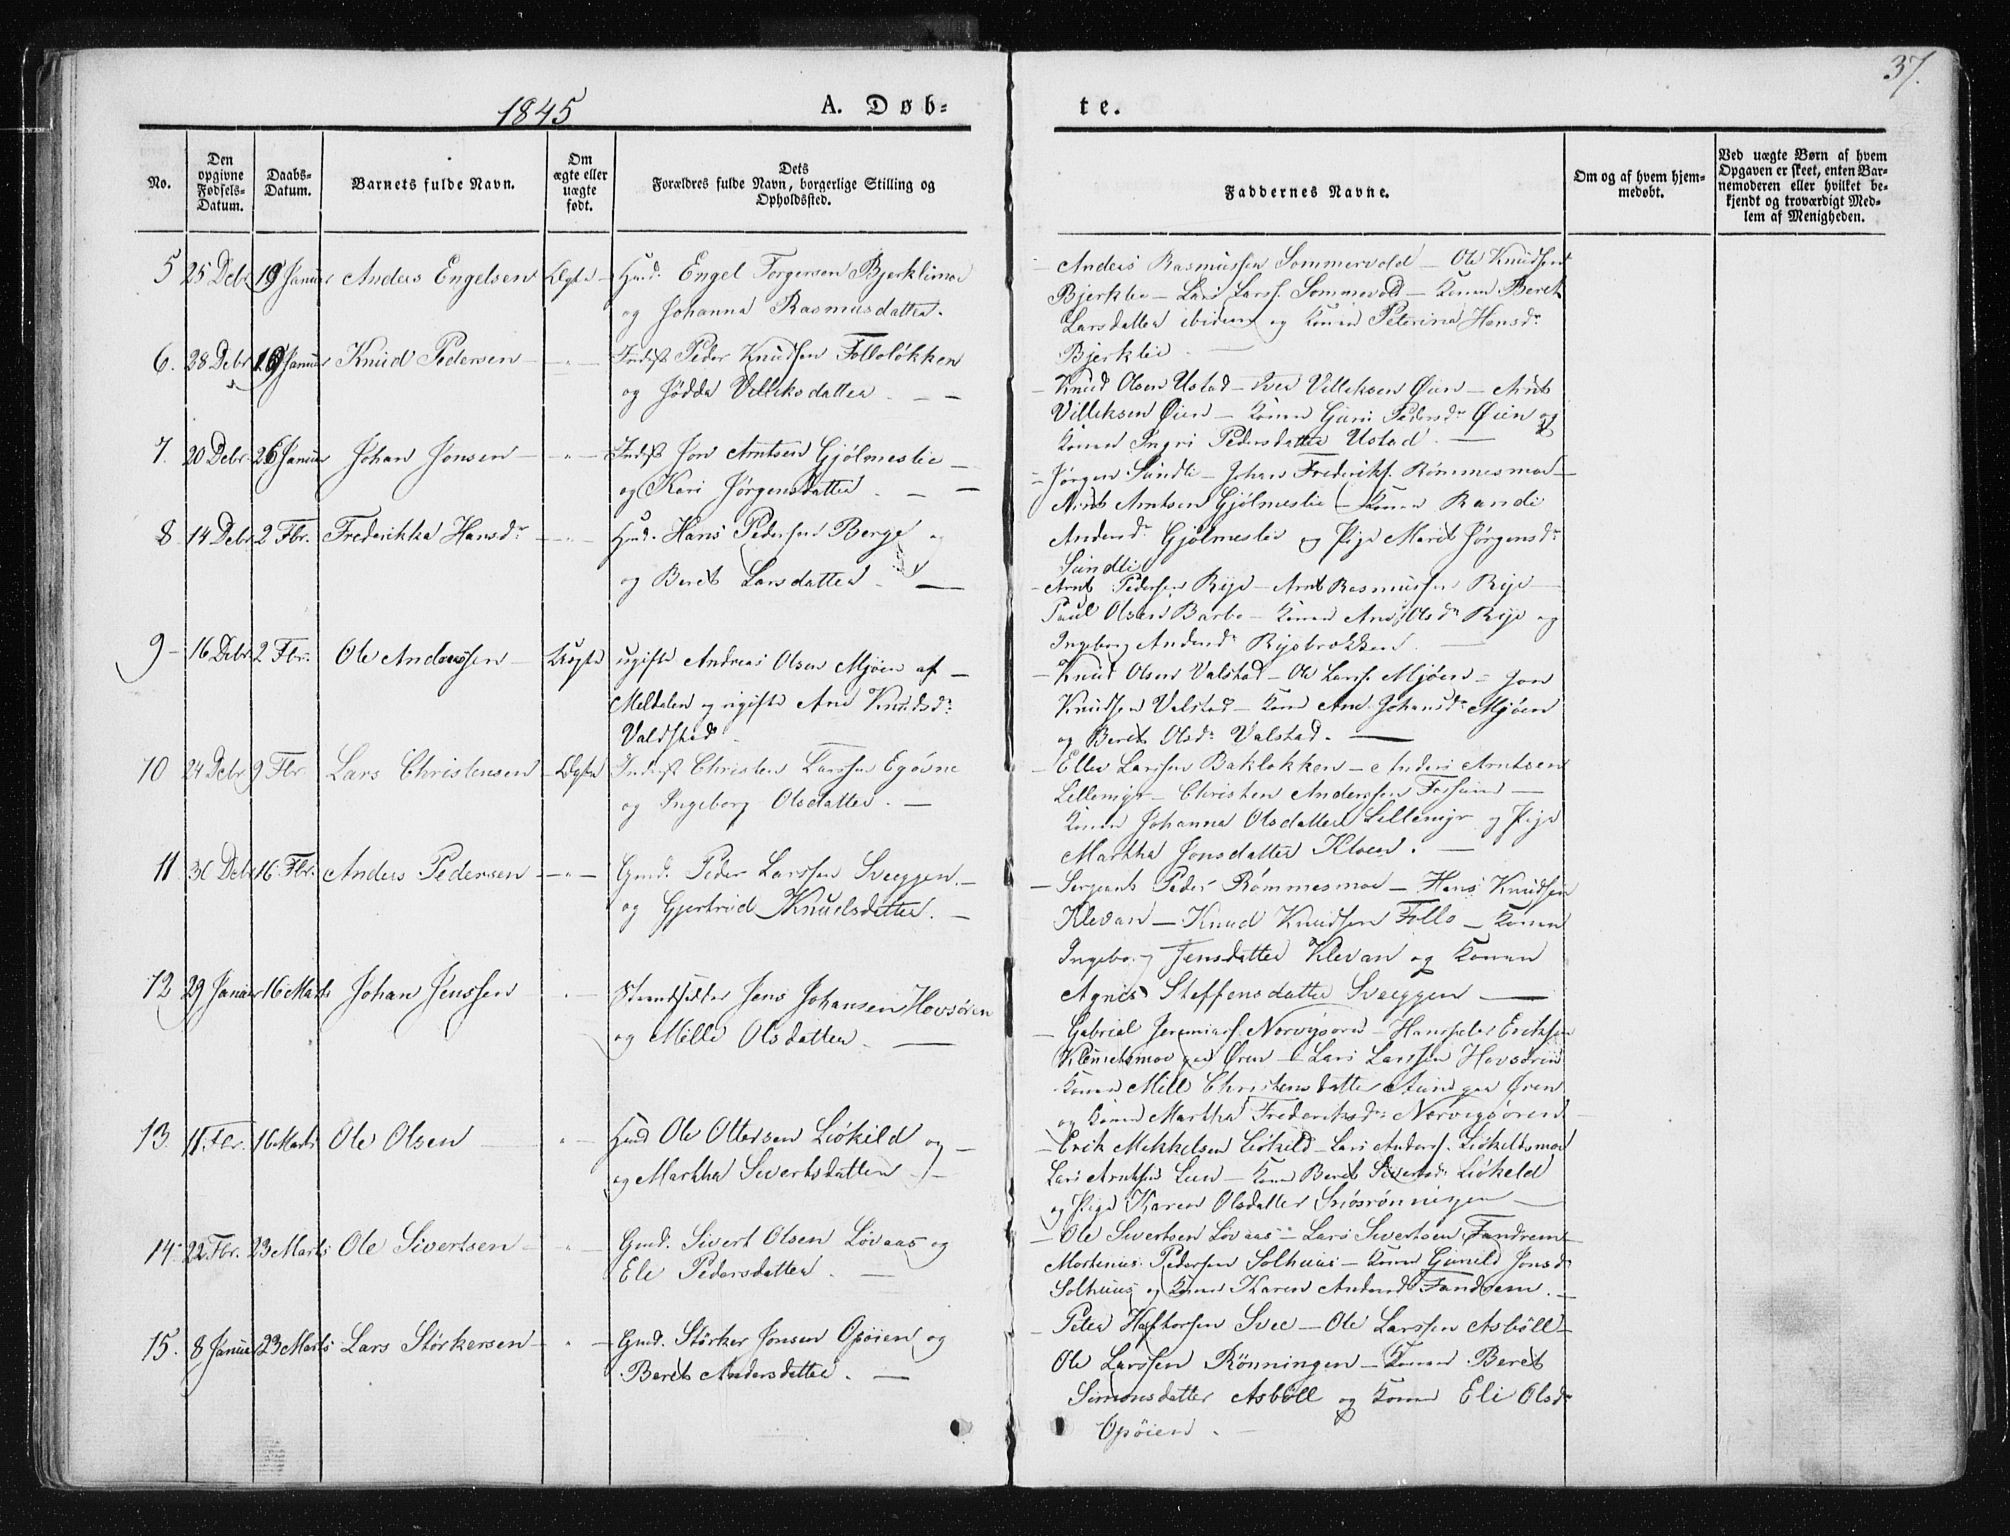 37.
1845
A. Døb-
te.
No.
Den opgivne Fødsels-Datum.
Daabs-Datum.
Barnets fulde Navn.
Om ægte eller uægte født.
Dets Forældres fulde Navn, borgerlige Stilling og Opholdssted.
Faddernes Navne.
Om og af hvem hjemmedøbt.
Ved uægte Børn af hvem Opgaven er skeet, enten Barnemoderen eller hvilket bekjendt og troværdigt Medlem af Menigheden.
5 25 Debr 19 Januar Anders Engelsen Ægte Huusm. Engel Torgersen Bjerklimoe
og Johanna Rasmusdatter.
Anders Rasmussen Sommervold - Ole Knudsen
Bjerklie - Lars Larss. Sommervold - Konen Beret
Larsdatter ibidem og Konen Peterina Hansdr
Bjerklie
6. 28 Debr 19 Januar Knud Pedersen - " - Inderst Peder Knudsen Folloløkken
og Jødda Villiksdatter.
Knud Olsen Ustad - Iver Villiksen Øien - Arnt
Villiksen Øien - Konen Guri Pedersdr Øien og
Konen Ingri Pedersdatter Ustad.
7. 20 Debr 26 Januar Johan Jonsen - " - Inderst Jon Arntsen Gjølmeslie
og Kari Jørgensdatter.
Jørgen Sundli - Johan Frederiks. Rømmesmoe
Arnt Arntsen Gjølmeslie - Konen Randi
Andersdr Gjølmeslie og Pige Marit Jørgensdr
Sundli
8. 14 Debr 2 Fbr. Frederikka Hansdr - " - Huusm. Hans Pedersen Berge og
og Beret Larsdatter.
Arnt Pedersen Rije - Arnt Rasmussen Rije
Paul Olsen Barbo - Konen Ane Olsdr Rije og
Ingeborg Andersdr Rijsbrækken.
9 - 16 Debr 2 Fbr. Ole Andersen Uægte ugifte Andreas Olsen Mjøen af
Meldalen og ugifte Ane Knudsdr
Valdstad
Knud Olsen Valstad - Ole Larss. Mjøen - Jon
Knudsen Valstad - Kone Ane Johansdr Mjøen
og Beret Olsdr Valstad.
10 24 Debr 9 Fbr Lars Christensen Ægte Inderst Christen Larssen Egøvne
og Ingeborg Olsdatter.
Ellev Larssen Bakløkken - Anders Arntsen
Lillemyr - Christen Anderssen Fossum
Konen Johanna Olsdatter Lillemyr og Pige
Martha Jonsdatter Kloen.
11 30 Debr 16. Fbr. Anders Pedersen - " - Gmd. Peder Larssen Sveeggen.
og Gjertrud Knudsdatter.
Sergeant Peder Rømmesmoe - Hans Knudsen
Klevan - Knud Knudsen Follo - Konen
Ingeborg Jensdatter Klevan og Konen
Agnes Steffensdatter Sveeggen
12 29 Januar 16 Marts Johan Jenssen " Strandsidder Jens Johansen Hovsøren
og Mille Olsdatter.
Gabriel Jeremiass. Norvigsøren - Hanspeter Eriksen
Klinetsmoe paa Øren - Lars Larssen Hovsøren
Konen Mille Christensdatter Aune paa Øren
og Konen Martha Frederiksdr Norvigsøren
13 11. Fbr. 16 Marts Ole Olsen " Huusm Ole Ottersen Liøkild og
og Martha Sivertsdatter
Erik Mekkelsen Liøkild - Lars Anders. Liøkildsmoe
Lars Arntsen Luen - Kone Beret Sivertsdr Liøkild
og Pige Karen Olsdatter Sniøsrønningen
14. 22 Fbr. 23 Marts Ole Sivertsen - " - Gmd. Sivert Olsen Løvaas og
Eli Pedersdatter.
Ole Sivertsen Løvaas - Lars Sivertsen Fandrem
Mortinus Pedersen Solhuus - Konen Gunild Jonsdr
Solhuus og Konen Karen Andersdr Fandrem.
15. 8 Januar 23 Marts Lars Størkersen " Gmd. Størker Jonsen Opøien og
Beret Andersdatter.
Peter Haftorsen Svee - Ole Larssen Asbøll
Ole Larssen Rønningen - Konen Beret
Simonsdatter Asbøll og Konen Eli Olsdr
Opøien.